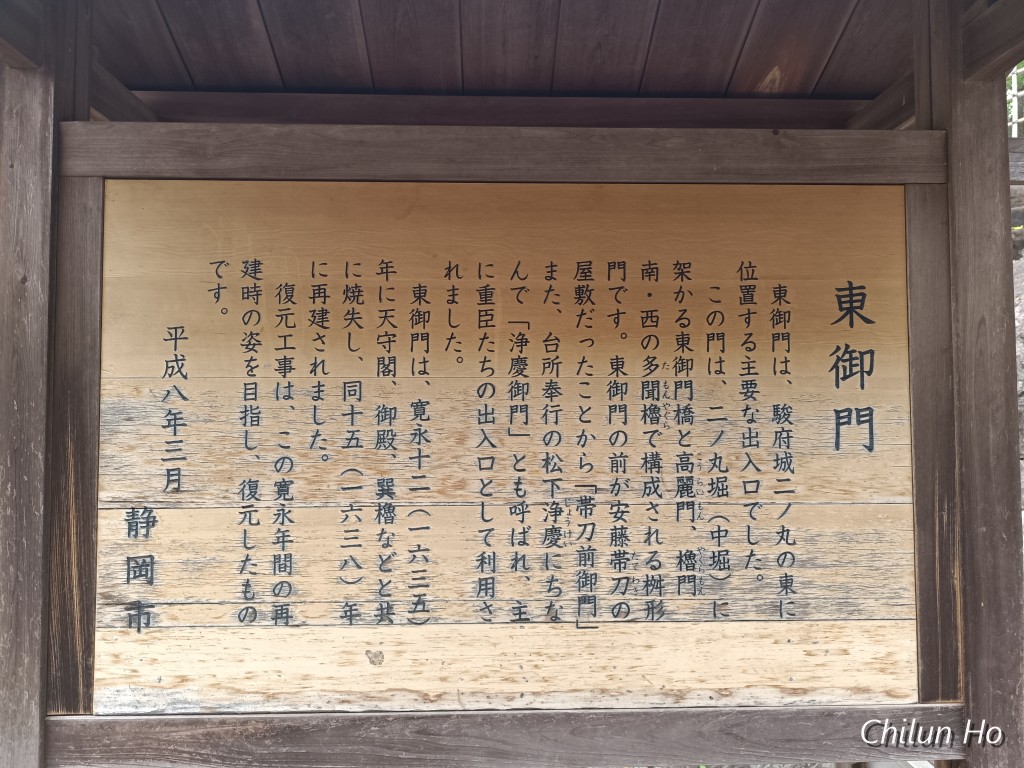 東御門
東御門は、駿府城二ノ丸の東に
位置する主要な出入口でした。
この門は、二ノ丸堀（中堀）に
架かる東御門橋と高麗門、櫓門、
南・西の多聞櫓で構成される桝形
門です。東御門の前が安藤帯刀の
屋敷だったことから「帯刀前御門」
また、台所奉行の松下浄慶にちな
んで「浄慶御門」とも呼ばれ、主
に重臣たちの出入口として利用さ
れました。
東御門は、寛永十二（一六三五）
年に天守閣、御殿、巽櫓などと共
に焼失し、同十五（一六三八）年
に再建されました。
復元工事は、この寛永年間の再
建時の姿を目指し、復元したもの
です。
平成八年三月
静岡市
Chilun Ho